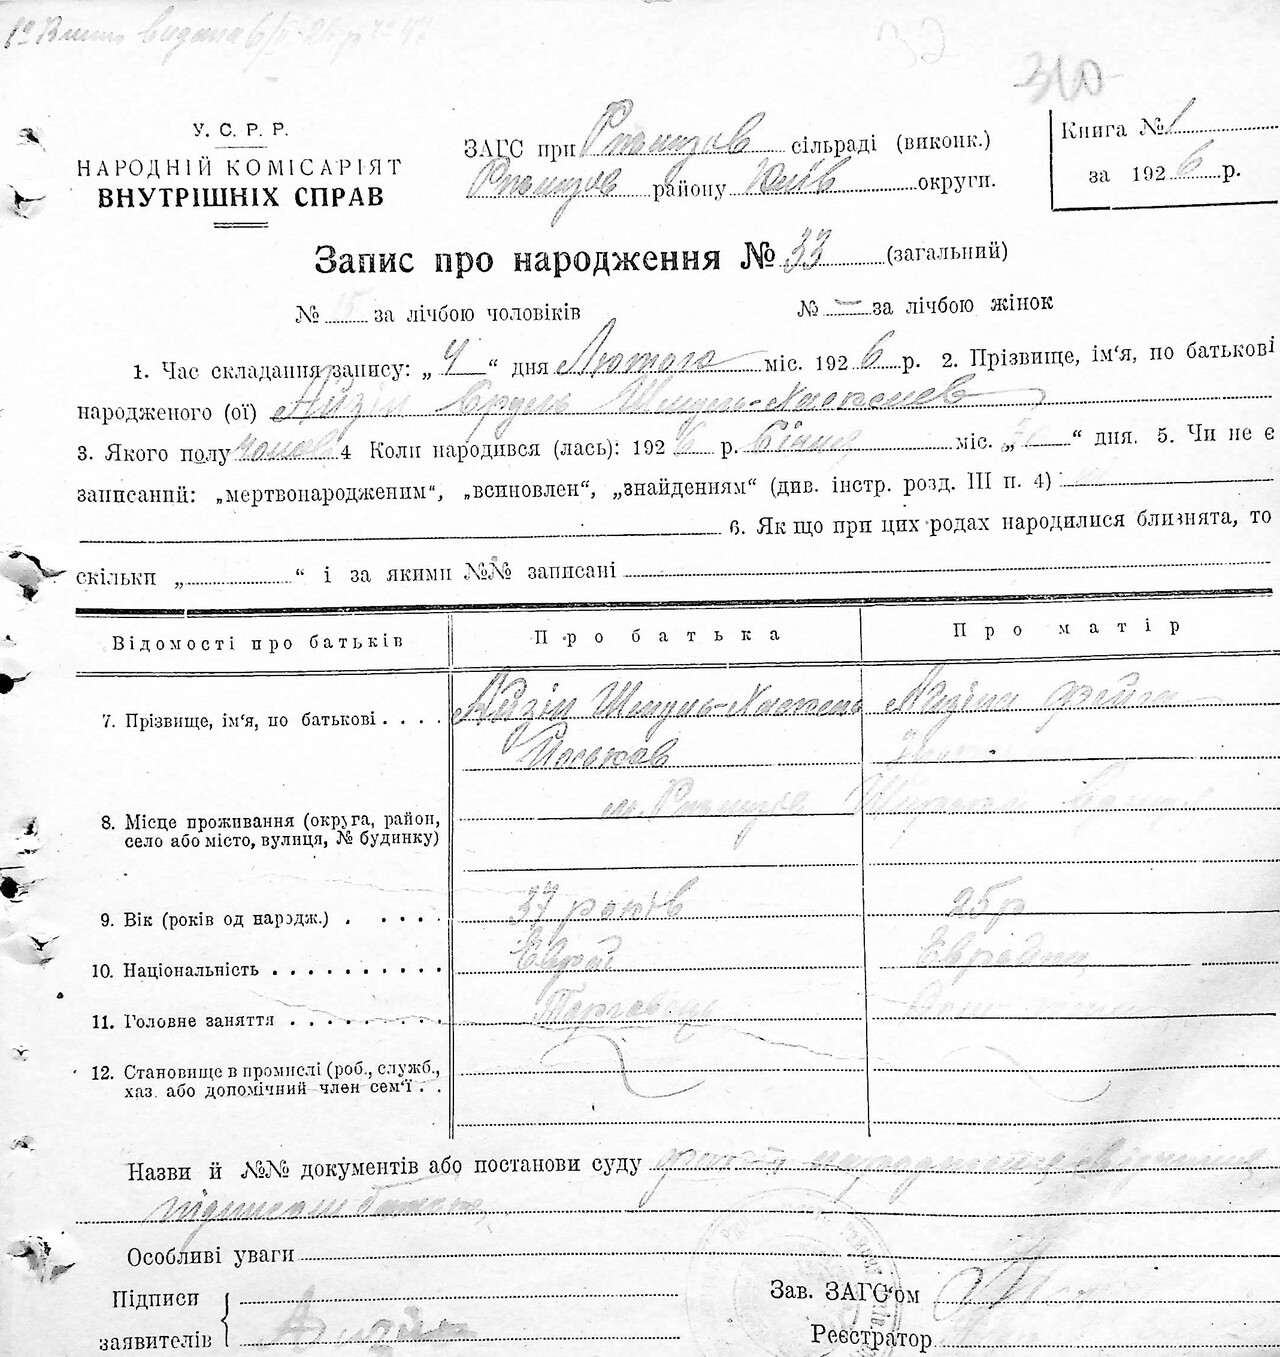 видана
32
310
У. С. Р. Р.
НАРОДНІЙ КОМІСАРІЯТ
ВНУТРІШНІХ СПРАВ
ЗАГС при Ржищів сільраді (виконк.)
Ржищів району Київ округи.
Книга № 1
за 1926 р.
Запис про народження № 33 (загальний)
№ 15 за лічбою чоловіків № — за лічбою жінок
1. Час складання запису: „4“ дня Лютого міс. 1926 р. 2. Прізвище, ім‘я, по батькові
народженого (ої) Айзін Сруль Шмуль-Хаскелев
3. Якого полу чолов 4 Коли народився (лась): 1926 р. Січня міс. „ “ дня. 5. Чи не є
записаний: „мертвонародженим“, „всиновлен“, „знайденням“ (див. інстр. розд. III п. 4)
6. Як що при цих родах народилися близнята, то
скільки „ “ і за якими №№ записані
Відомості про батьків Про батька Про матір
7. Прізвище, ім‘я, по батькові . . . . Айзін Шмуль-Хаскель Айзіна Фейга
Йоськов
8. Місце проживання (округа, район, м. Ржищів
село або місто, вулиця, № будинку)
9. Вік (років од нардж.) . . . . . 37 років 25 р
10. Національність . . . . . . . . . . Єврей Єврейка
11. Головне заняття . . . . . . . . . Торговець
12. Становище в промислі (роб., служб.,
хаз. або допомічний член сем‘ї . .
Назви й №№ документів або постанови суду
підписали
Особливі уваги
Підписи
заявителів
Зав. ЗАГС‘ом
Реєстратор